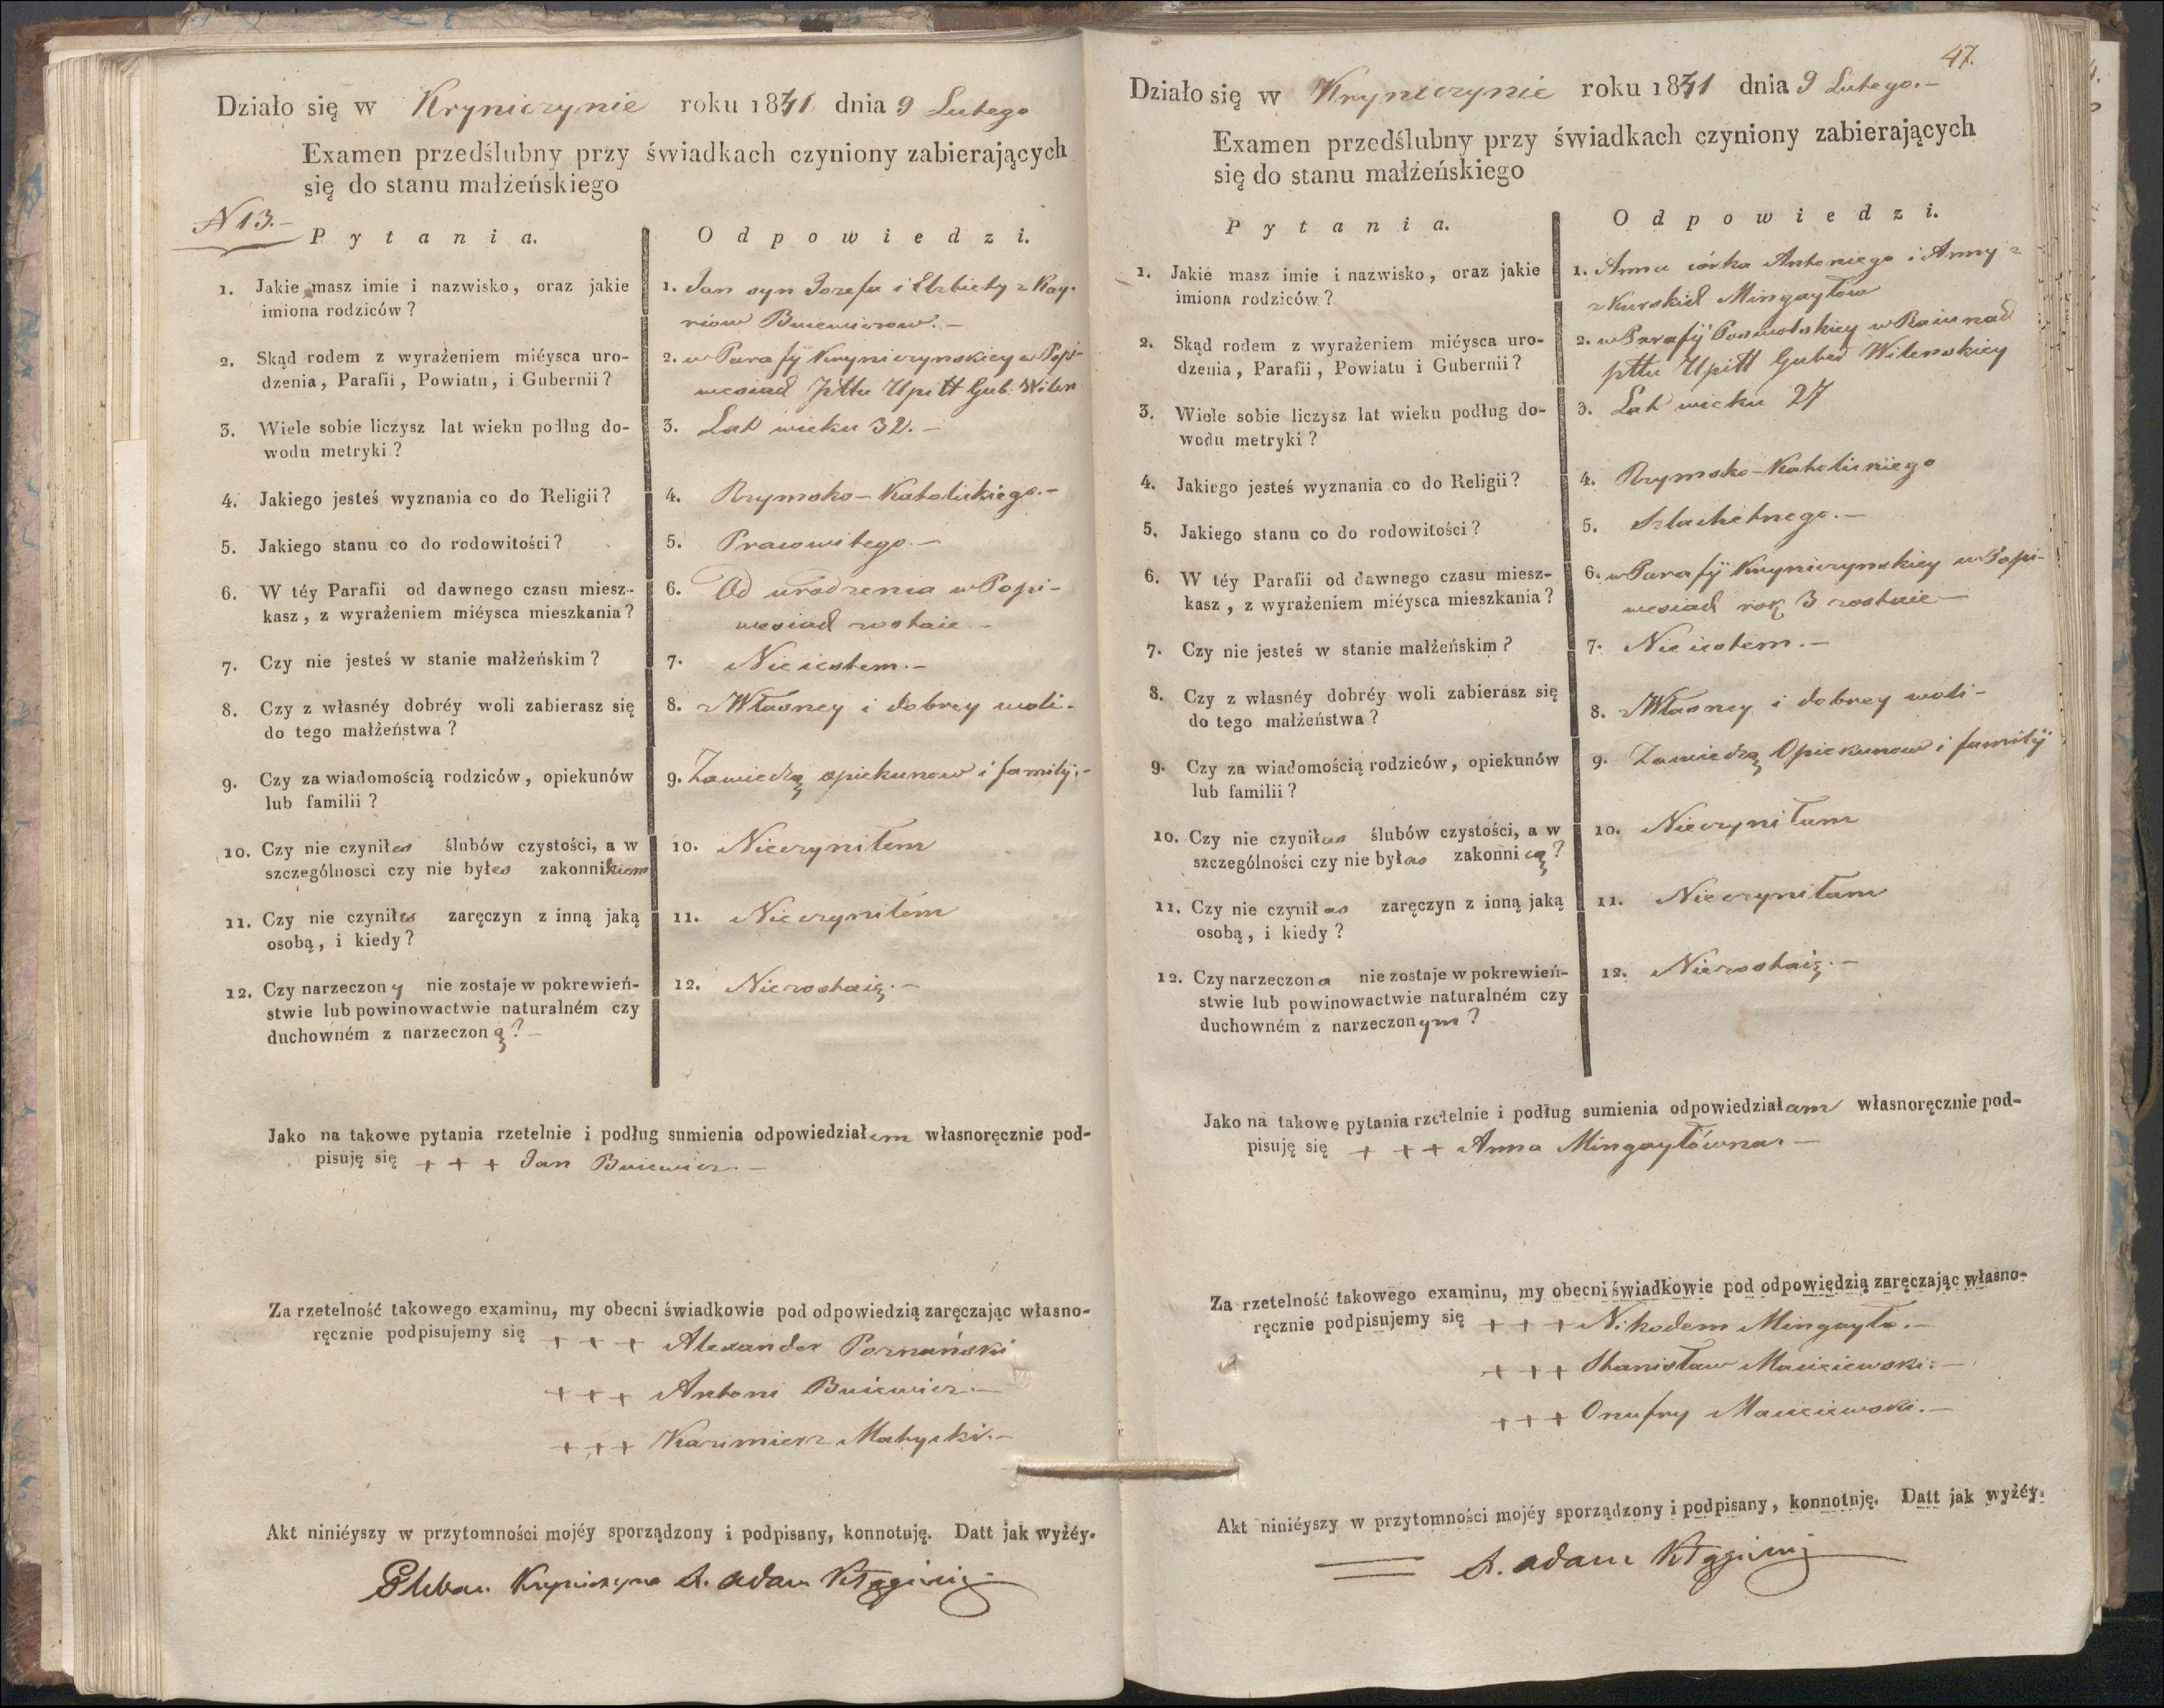 Działo się w Kryniczynie roku 1841 dnia 9 Lutego
Examen przedślubny przy świadkach czyniony zabierających
się do stanu małżeńskiego
N 13.-
Pytania.
Odpowiedzi.
1. Jakie masz imie i nazwisko, oraz jakie
imiona rodziców?
1. Jan syn Jozefa i Elzbiety z
Buiewiczow.-
2. Skąd rodem z wyrażeniem miéysca uro-
dzenia, Parafii, Powiatu, i Gubernii?
2. w Parafÿ Kryniczynskiey w Popi-
wesiach Pttu Upitt Gub: Wilen
3. Wiele sobie liczysz lat wieku podług do-
wodu metryki?
3. Lat wieku 32.-
4. Jakiego jesteś wyznania co do Religii?
4. Rzymsko-Katolickiego.-
5. Jakiego stanu co do rodowitości?
5. Pracowitego.-
6. W téy Parafii od dawnego czasu miesz-
kasz, z wyrażeniem miéysca mieszkania?
6. Od urodzenia w Popi-
wesiach zostaie.-
7. Czy nie jesteś w stanie małżeńskim?
7. Nie iestem.-
8. Czy z własnéy dobréy woli zabierasz się
do tego małżeństwa?
8. z Własney i dobrey woli.-
9. Czy za wiadomością rodziców, opiekunów
lub familii?
9. Zawiedzą opiekunow i familÿ.-
10. Czy nie czyniłes ślubów czystości, a w
szczególnosci czy nie byłes zakonnikiem
10. Nieczyniłem
11. Czy nie czyniłes zaręczyn z inną jaką
osobą, i kiedy?
11. Nieczyniłem
12. Czy narzeczony nie zostaje w pokrewień-
stwie lub powinowactwie naturalném czy
duchowném z narzeczoną?-
12. Niezostaię.-
Jako na takowe pytania rzetelnie i podług sumienia odpowiedziałem własnoręcznie pod-
pisuję się + + + Jan Buiewicz.-
Za rzetelność takowego examinu, my obecni świadkowie pod odpowiedzią zaręczając własno-
ręcznie podpisujemy się + + + Alexander Poznański
+ + + Antoni Buiewicz.-
+ + + Kazimierz Matycki.-
Akt niniéyszy w przytomności mojéy sporządzony i podpisany, konnotuję. Datt jak wyżéy.
Pleban X. Adam
47.
Działo się w Kryniczynie roku 1841 dnia 9 Lutego.-
Examen przedślubny przy świadkach czyniony zabierających
się do stanu małżeńskiego
Pytania.
Odpowiedzi.
1. Jakie masz imie i nazwisko, oraz jakie
imiona rodziców?
1. Anna córka Antoniego i Anny z
Mingayłow
2. Skąd rodem z wyrażeniem miéysca uro-
dzenia, Parafii, Powiatu i Gubernii?
2. w Parafÿ
pttu Upitt Guber Wilenskiey
3. Wiele sobie liczysz lat wieku podług do-
wodu metryki?
3. Lat wieku 27
4. Jakiego jesteś wyznania co do Religii?
4. Rzymsko-Katolickiego
5. Jakiego stanu co do rodowitości?
5. Szlachetnego.-
6. W téy Parafii od dawnego czasu miesz-
kasz, z wyrażeniem miéysca mieszkania?
6. w Parafÿ Kryniczynskiey w Popi-
wesiach rok 3 zostaie-
7. Czy nie jesteś w stanie małżeńskim?
7. Nie iestem.-
8. Czy z własnéy dobréy woli zabierasz się
do tego małżeństwa?
8. z Własney i dobrey woli-
9. Czy za wiadomością rodziców, opiekunów
lub familii?
9. Zawiedzą Opiekunow i familÿ
10. Czy nie czyniłas ślubów czystości, a w
szczególności czy nie byłas zakonnicą?
10. Nieczyniłam
11. Czy nie czyniłas zaręczyn z inną jaką
osobą, i kiedy?
11. Nieczyniłam
12. Czy narzeczona nie zostaje w pokrewień-
stwie lub powinowactwie naturalném czy
duchowném z narzeczonym?
12. Niezostaię.-
Jako na takowe pytania rzetelnie i podług sumienia odpowiedziałam własnoręcznie pod-
pisuję się + + + Anna Mingayłówna.-
Za rzetelność takowego examinu, my obecni świadkowie pod odpowiedzią zaręczając własno-
ręcznie podpisujemy się + + + Nikodem Mingayło.-
+ + + Stanisław Macieiewski.-
+ + + Onufry Macieiewski.-
Akt niniéyszy w przytomności mojéy sporządzony i podpisany, konnotuję. Datt jak wyżéy.
X. Adam